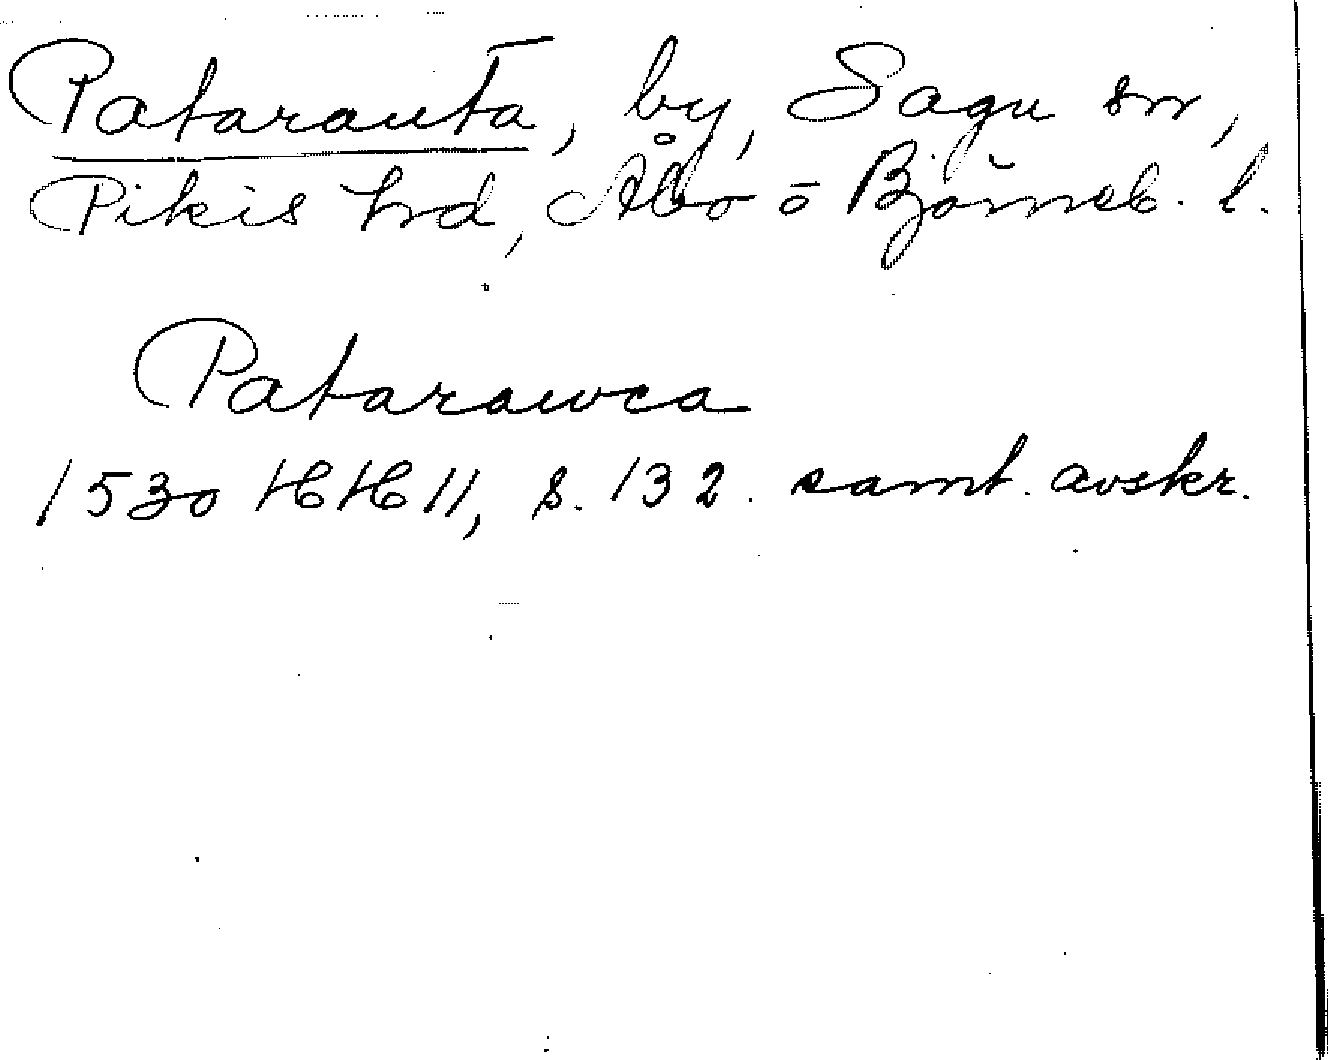 Patarauta, by, Sagu sn,
Pikis hrd, Åbo o Björneb. l.
Patarawca
1530 HH II, s. 132. samt. avskr.